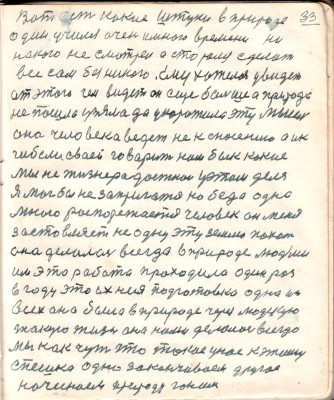 Вот есть какие штуки в природе 33
один учился очен много времени ни
накого не смотрел а сторону сделат
все сам без никого. Ему хотелос увидет
от этого чем видет он еще больше а природа
не пошла взяла да укоротила эту мысль
она человека ведет не к спосению а к
гибели своей говарит нам бык какие
мы не жизнерадостною уэтом деля
Я мог бы не запригатся но беда одна
много роспорежается человек он меня
заставляет не одну эту землю пахат
она делалос всегда в природе людми
им это работа проходила один роз
в году это их неся подготовка одна на
всех она была в природе через людскую
такую жизнь она нами делалос всегда
мы как чут это только у нас к этому
спешка одно заканчиваем другое
начинаем природу гоним